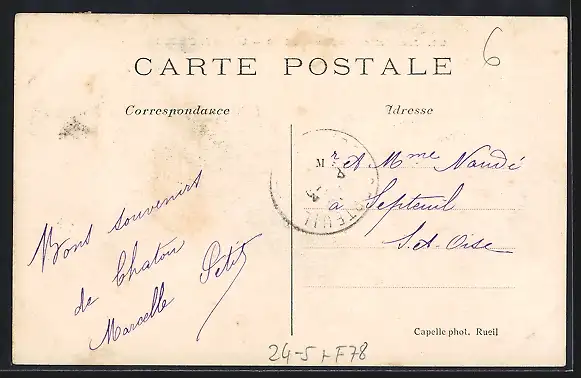 CARTE POSTALE
6
Correspondance
Adresse
M r et Mme Naudé
à Septeuil
S.-et-Oise
Bons souvenirs
de Chatou
Marcelle Petit
Capelle phot. Rueil
24-5 + F78